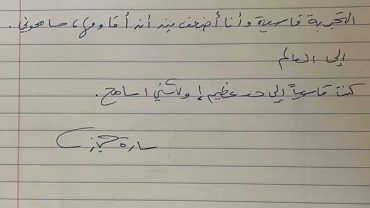 التجربة قاسية وأنا أضعف من أن أقاومها، سامحوني.
إلى العالم
كنت قاسياً إلى حد عظيم، ولكني أسامح.
سارة حجازي